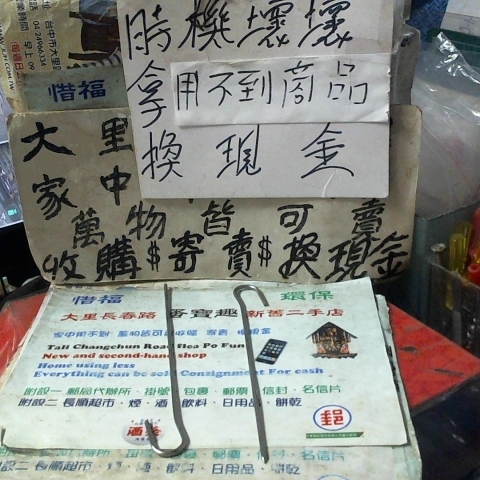 時機壞壞
拿用不到商品
換現金
惜福
大里
家中
萬物皆可賣
收購$寄賣$換現金
惜福 環保
大里長春路 香寶趣 新舊二手店
Tali Changchun Road flea Po Fun
New and second-hand shop
Home using less
Everything can be sold Consignment For cash
附設一 郵局代辦所、掛號、包裹、郵票、信封、名信片
附設二 長順超市、煙、酒、飲料、日用品、餅乾
郵
酒
附設二 長順超市、煙、酒、飲料、日用品、餅乾